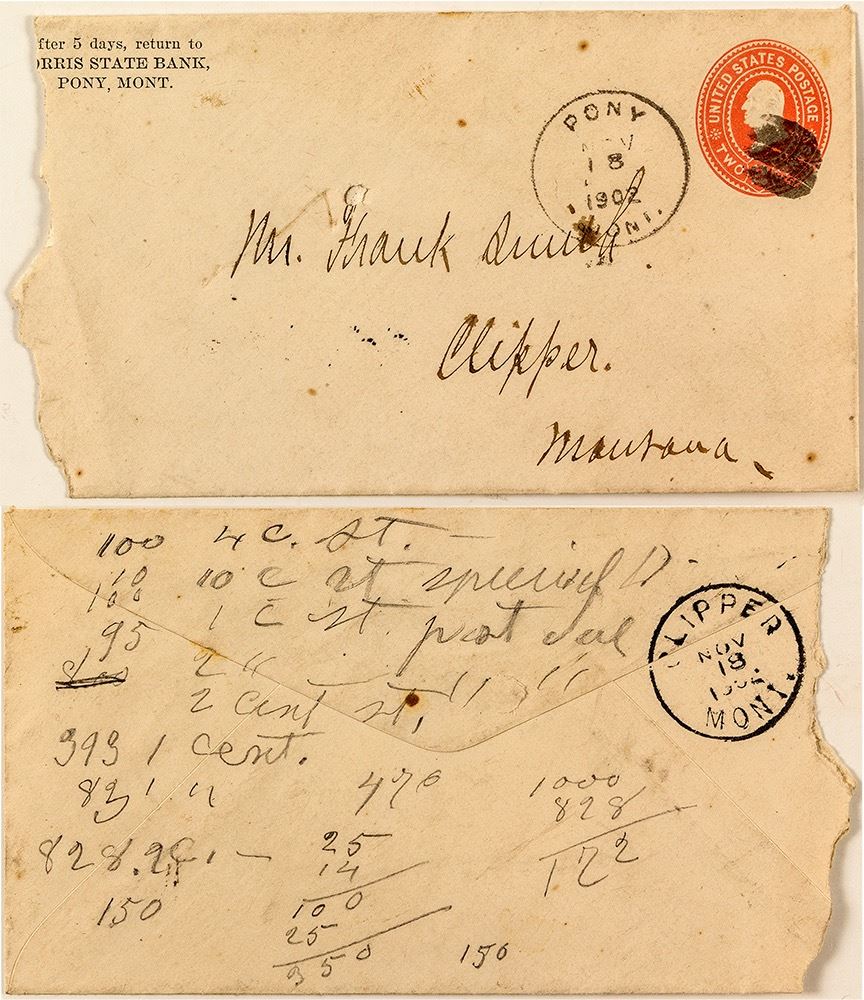 fter 5 days, return to
ORRIS STATE BANK,
PONY, MONT.
UNITED STATES POSTAGE
TWO
PONY
NOV
18
1902
MONT.
Mr. Frank Smith
Clipper.
Montana
100 4 c. st. —
110 10 c st special D.
100 1 c st.
95 2 "
post due
2 cent st, " "
393 1 cent.
831 "
470
1000
828
172
828.2c. —
25
14
100
25
350
150
150
CLIPPER
NOV
18
1902
MONT.